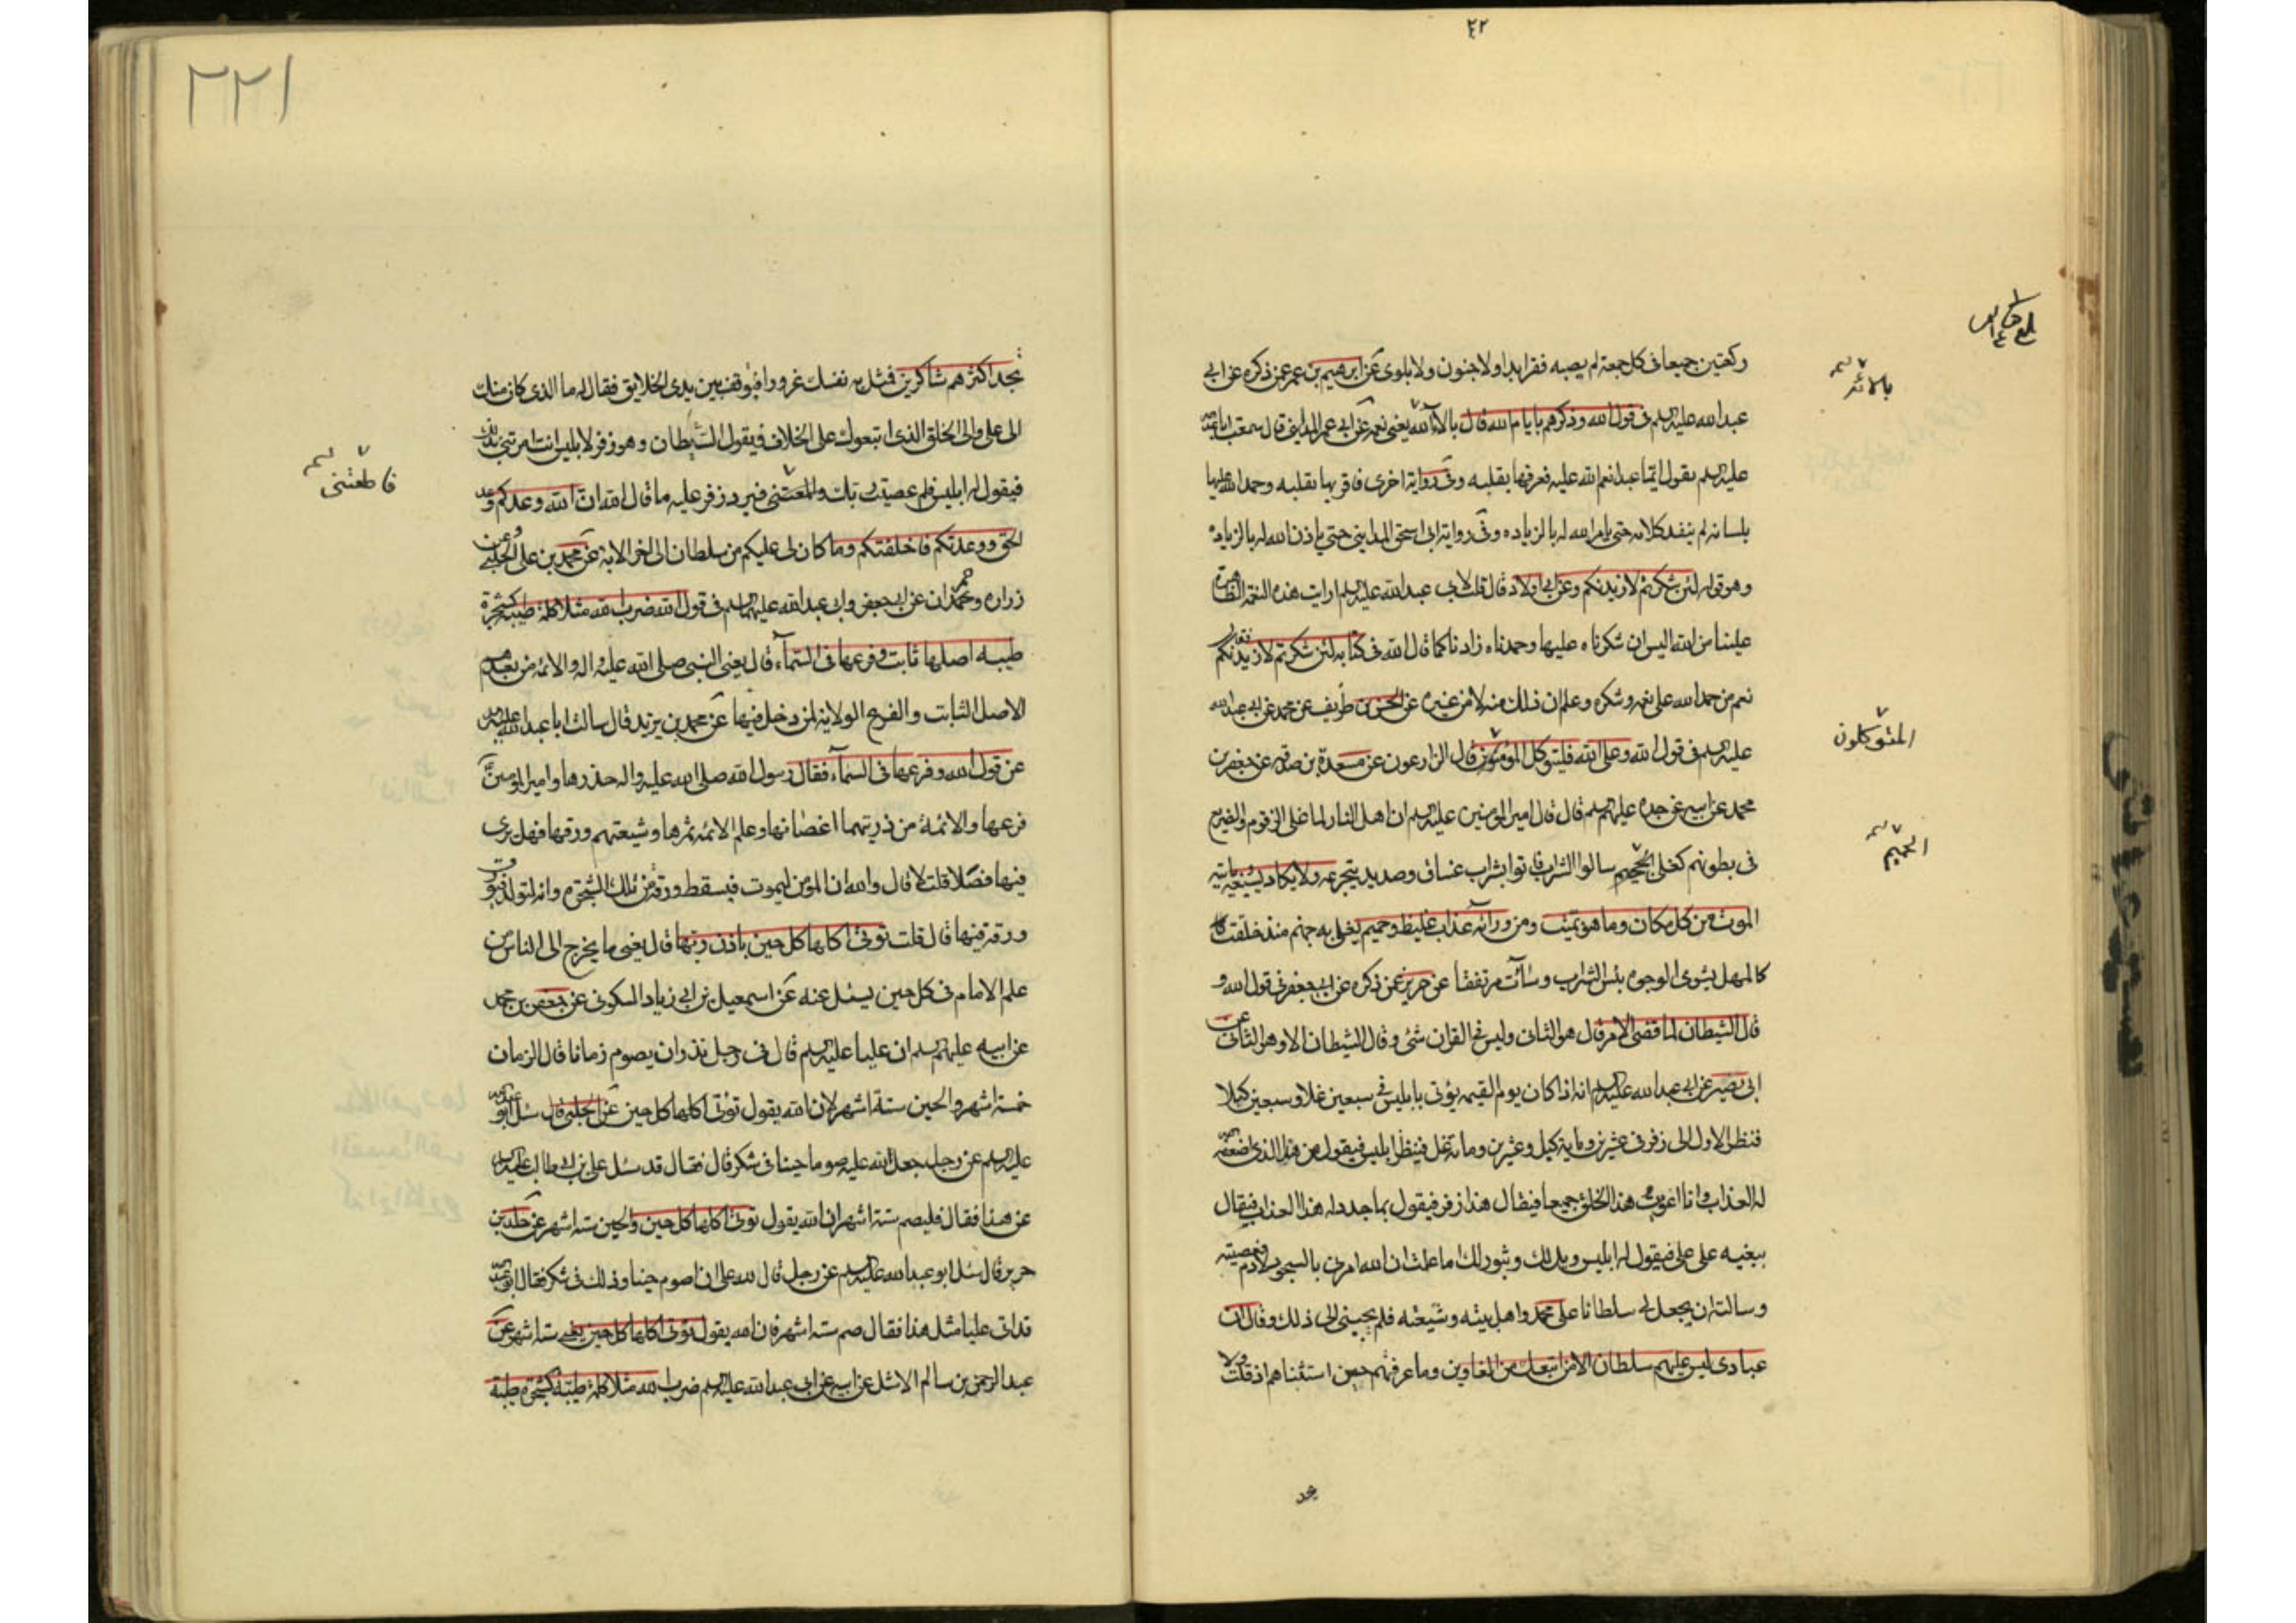 ٤٢
ركعتين جميعا فى كل جمعة لم يصبه فقر ابدا ولا جنون ولا بلوى عن ابرهيم بن عمر عمن ذكره عن ابى
عبد الله عليه السلم فى قول الله وذكرهم بايام الله قال بالاء الله يعنى نعمه عن ابى عمر المداينى قال سمعت ابا عبد الله
عليه السلم يقول ايما عبد انعم الله عليه فعرفها بقلبه وفى رواية اخرى فاقر بها بقلبه وحمد الله عليها
بلسانه لم ينفد كلامه حتى يامر الله له بالزياده وفى رواية ابى اسحق المداينى حتى ياذن الله له بالزياده
وهو قوله لئن شكرتم لازيدنكم وعن ابى ولاد قال قلت لابى عبد الله عليه السلم ارايت هذه النعمة الظاهرة
علينا من الله اليس ان شكرناه عليها وحمدناه زادنا كما قال الله فى كتابه لئن شكرتم لازيدنكم فقال
نعم من حمد الله على نعمه وشكره وعلم ان ذلك منه لا من غيره عن الحسن بن ظريف عن محمد عن ابى عبد الله
عليه السلم فى قول الله وعلى الله فليتوكل المؤمنون قال الزارعون عن مسعدة بن صدقه عن جعفر بن
محمد عن ابيه عن جده عليهم السلم قال قال امير المومنين عليه السلم ان اهل النار لما غلى الزقوم والضريع
فى بطونهم كغلى الجحيم سالوا الشراب فاتوا بشراب غساق وصديد يتجرعه ولا يكاد يسيغه ياتيه
الموت من كل مكان وما هو بميت ومن ورائه عذاب غليظ وحميم يغلى به جهنم منذ خلقت
كالمهل يشوى الوجوه بئس الشراب وسائت مرتفقا عن حريز عمن ذكره عن ابى جعفر فى قول الله و
قال الشيطان لما قضى الامر قال هو الثانى وليس فى القران شئ وقال الشيطان الا وهو الثانى عن
ابى بصير عن ابى عبد الله عليه السلم انه اذا كان يوم القيمه يؤتى بابليس فى سبعين غلا وسبعين كبلا
فنظر الاول الى زفر فى عشرين وماية كبل وعشرين ومائة غل فينظر ابليس فيقول من هذا الذى اضعف
له العذاب وانا اغويت هذا الخلق جميعا فيقال هذا زفر فيقول بما جدد له هذا العذاب فيقال
ببغيه على على فيقول له ابليس ويل لك وثبور لك اما علمت ان الله امرنى بالسجود لادم فعصيته
وسالته ان يجعل لى سلطانا على محمد واهل بيته وشيعته فلم يجبنى الى ذلك وقال ان
عبادى ليس عليهم سلطان الا من اتبعك من الغاوين وما عرفتهم حين استثناهم اذ قلت ولا
المتوكلون
الحميم
٢٢١
تجد اكثرهم شاكرين فمثل به نفسك غرورا فيوقف بين يدى الخلايق فقال له ما الذى كان منك
الى على والى الخلق الذى اتبعوك على الخلاف فيقول الشيطان وهو زفر لابليس انت امرتنى بذلك
فيقول له ابليس فلم عصيت ربك واطعتنى فيرد زفر عليه ما قال الله ان الله وعدكم وعد
الحق ووعدتكم فاخلفتكم وما كان لى عليكم من سلطان الى اخر الاية عن محمد بن على الحلبى عن
زراره وحمران عن ابى جعفر وابى عبد الله عليهما السلم فى قول الله ضرب الله مثلا كلمة طيبة كشجرة
طيبه اصلها ثابت وفرعها فى السماء قال يعنى النبى صلى الله عليه واله والائمه من بعده هم
الاصل الثابت والفرع الولاية لمن دخل فيها عن محمد بن يزيد قال سالت ابا عبد الله عليه السلم
عن قول الله وفرعها فى السماء فقال رسول الله صلى الله عليه واله جذرها وامير المومنين
فرعها والائمة من ذريتهما اغصانها وعلم الائمه ثمرها وشيعتهم ورقها فهل ترى
فيها فضلا قلت لا قال والله ان المؤمن ليموت فيسقط ورقة من تلك الشجرة وانه لتولد فتورق
ورقة فيها قال قلت توتى اكلها كل حين باذن ربها قال يعنى ما يخرج الى الناس من
علم الامام فى كل حين يسئل عنه عن اسمعيل بن ابى زياد السكونى عن جعفر بن محمد
عن ابيه عليهم السلم ان عليا عليه السلم قال فى رجل نذر ان يصوم زمانا قال الزمان
خمسة اشهر والحين ستة اشهر لان الله يقول توتى اكلها كل حين عن الحلبى قال سئل ابو عبد الله
عليه السلم عن رجل جعل لله عليه صوما حينا فى شكر قال فقال قد سئل على بن ابى طالب عليه السلم
عن هذا فقال فليصم ستة اشهر ان الله يقول توتى اكلها كل حين والحين ستة اشهر عن خلد بن
جرير قال سئل ابو عبد الله عليه السلم عن رجل قال لله على ان اصوم حينا وذلك فى شكر فقال ابو عبد الله
قد اتى عليا مثل هذا فقال صم ستة اشهر فان الله يقول توتى اكلها كل حين يعنى ستة اشهر عن
عبد الرحمن بن سالم الاشل عن ابيه عن ابى عبد الله عليه السلم ضرب الله مثلا كلمة طيبة كشجرة طيبة